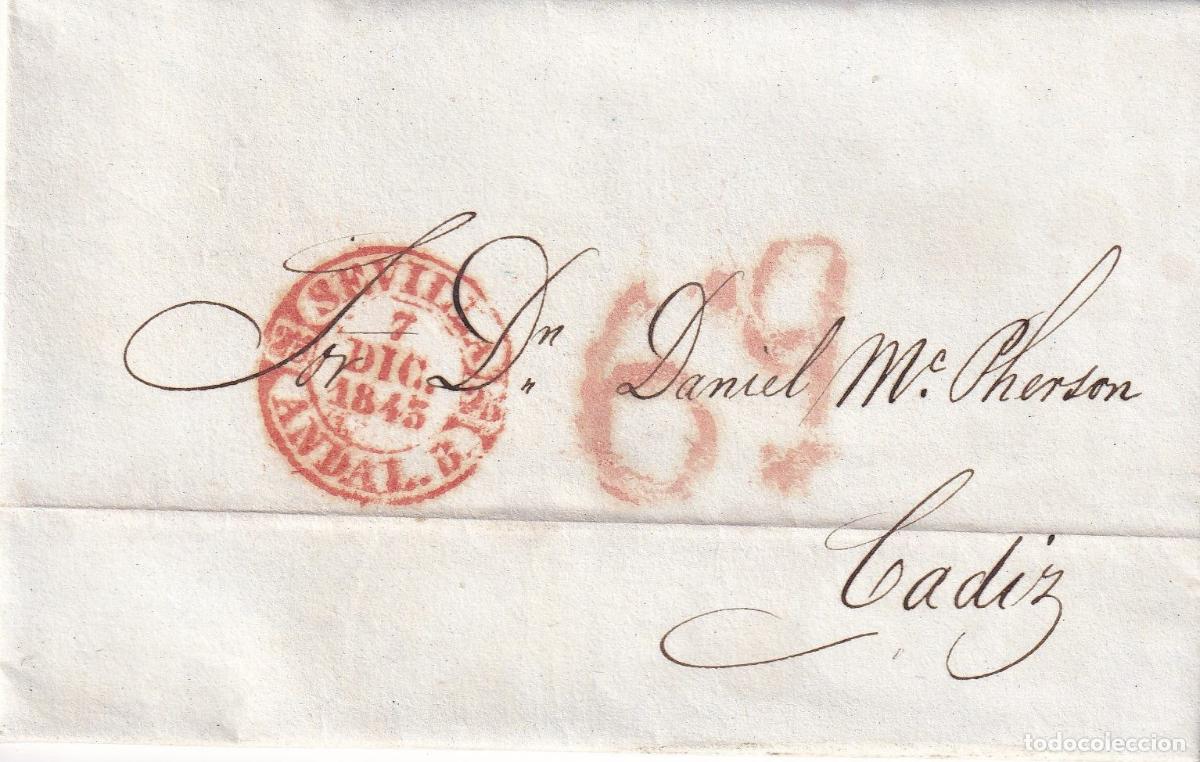 SEVILLA
7
DIC.
1845
ANDAL. B.
6 q
Sor Dn Daniel Mc. Pherson
Cadiz
todocoleccion